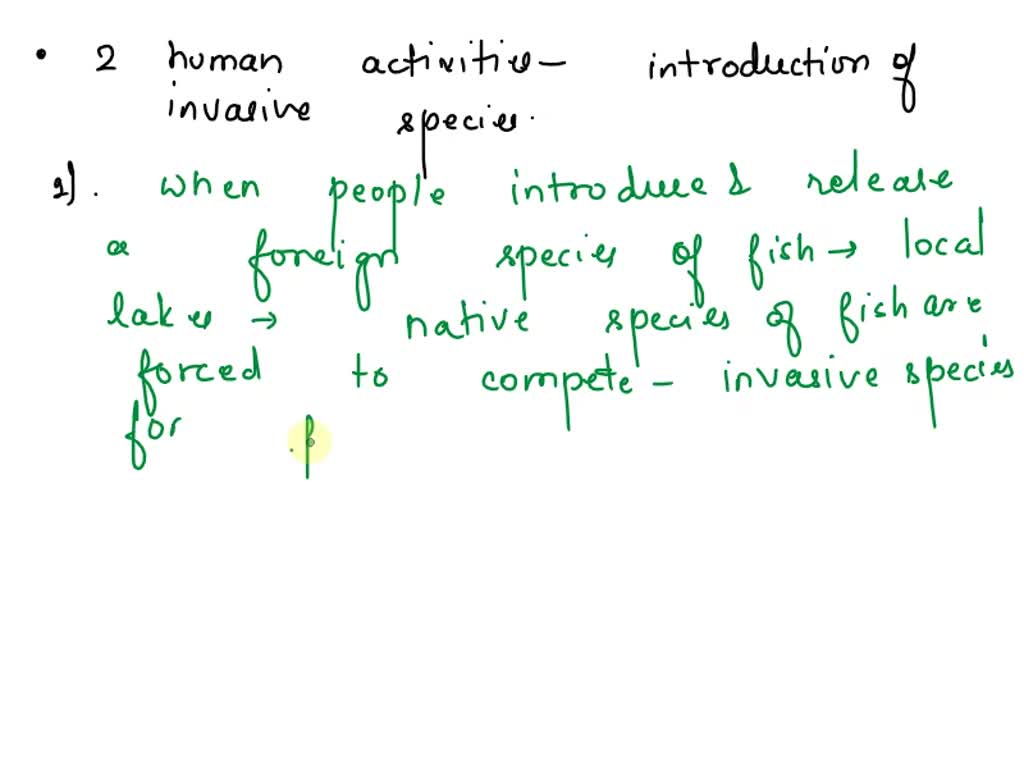 • 2 human activities – introduction of
invasive species.
1). When people introduce & release
a foreign species of fish → local
lakes → native species of fish are
forced to compete – invasive species
for